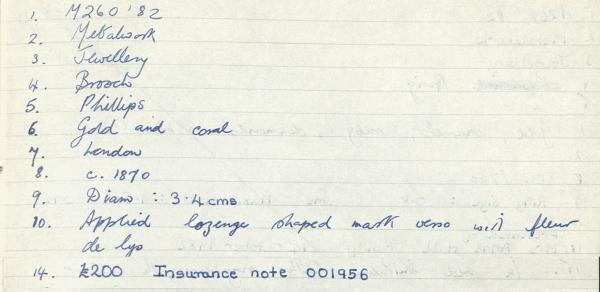 1. M260 '82
2. Metalwork
3. Jewellery
4. Brooch
5. Phillips
6. Gold and coral
7. London
8. c. 1870
9. Diam : 3.4 cms
10. Applied lozenge shaped mark verso with fleur
de lys
14. £200 Insurance note 001956